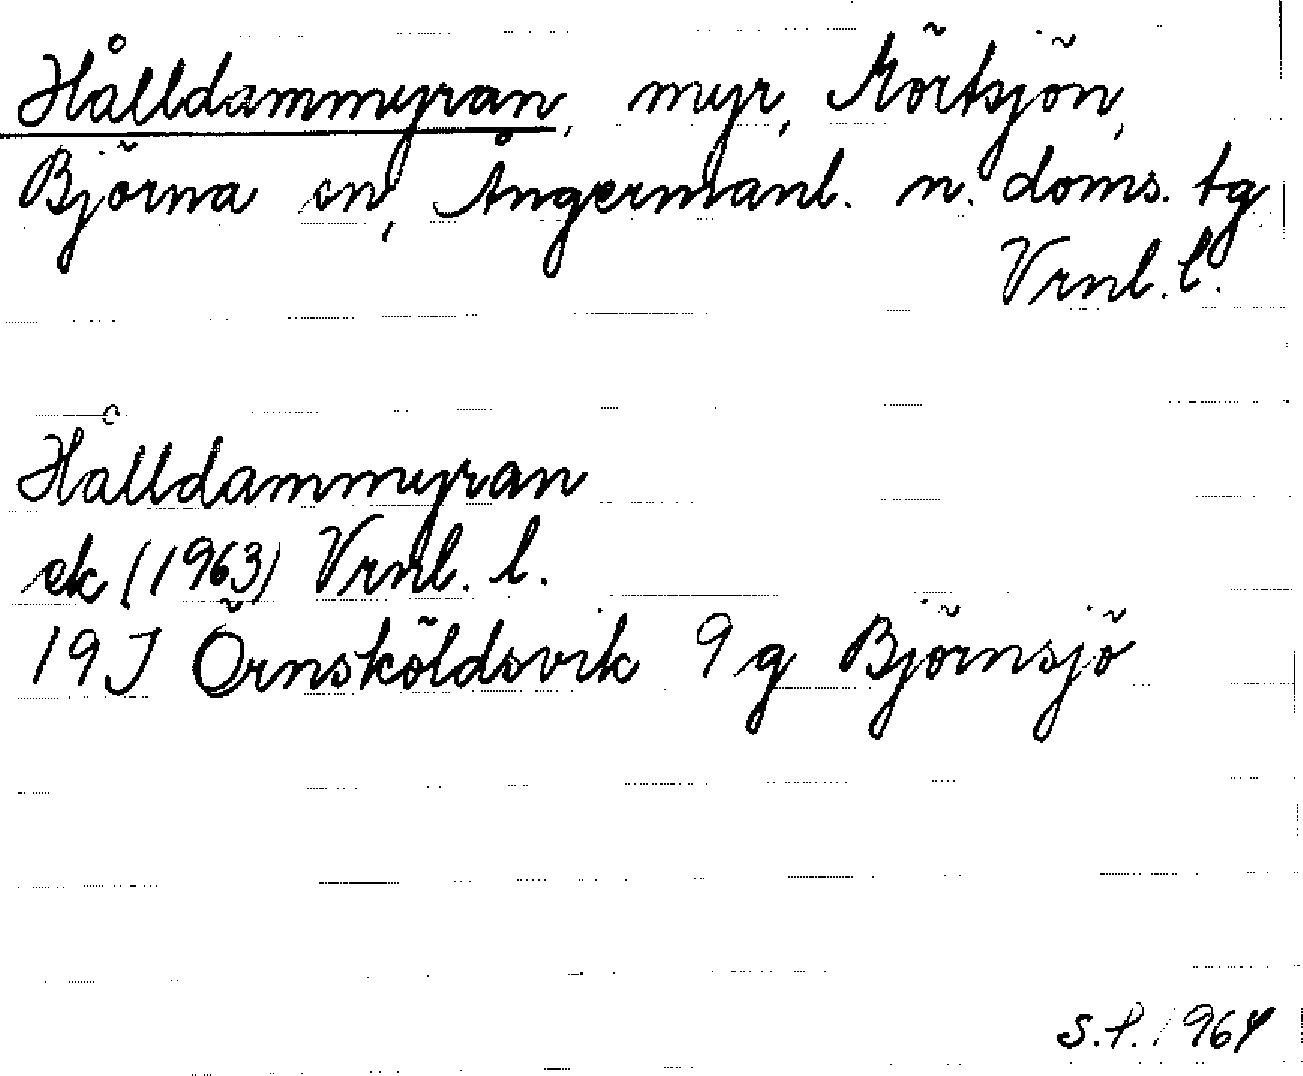 Hålldammyran, myr, Mörtsjön,
Björna sn, Ångermanl. n. doms. tg
Vrnl. l.
Hålldammyran
ek (1963) Vrnl. l.
19 J Örnsköldsvik 9 g Björnsjö
S.P. 1964